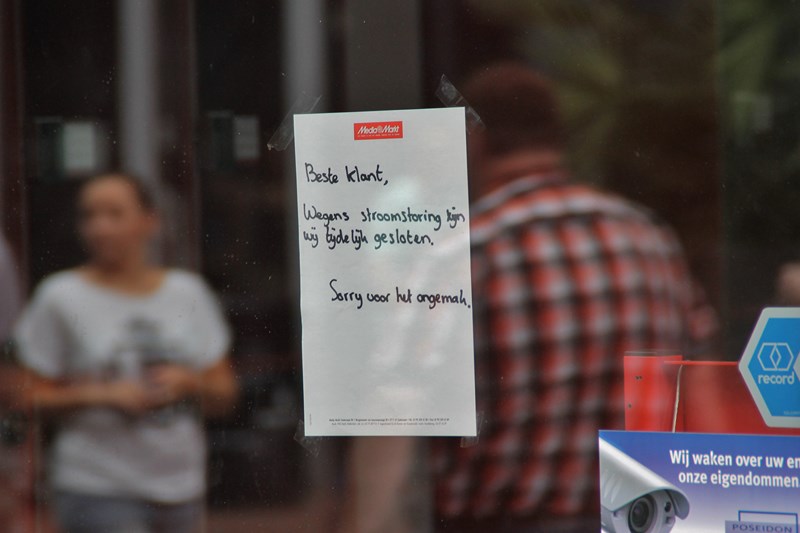 Media Markt
Beste klant,
Wegens stroomstoring zijn
wij tijdelijk gesloten.
Sorry voor het ongemak.
record
Wij waken over uw en
onze eigendommen
POSEIDON